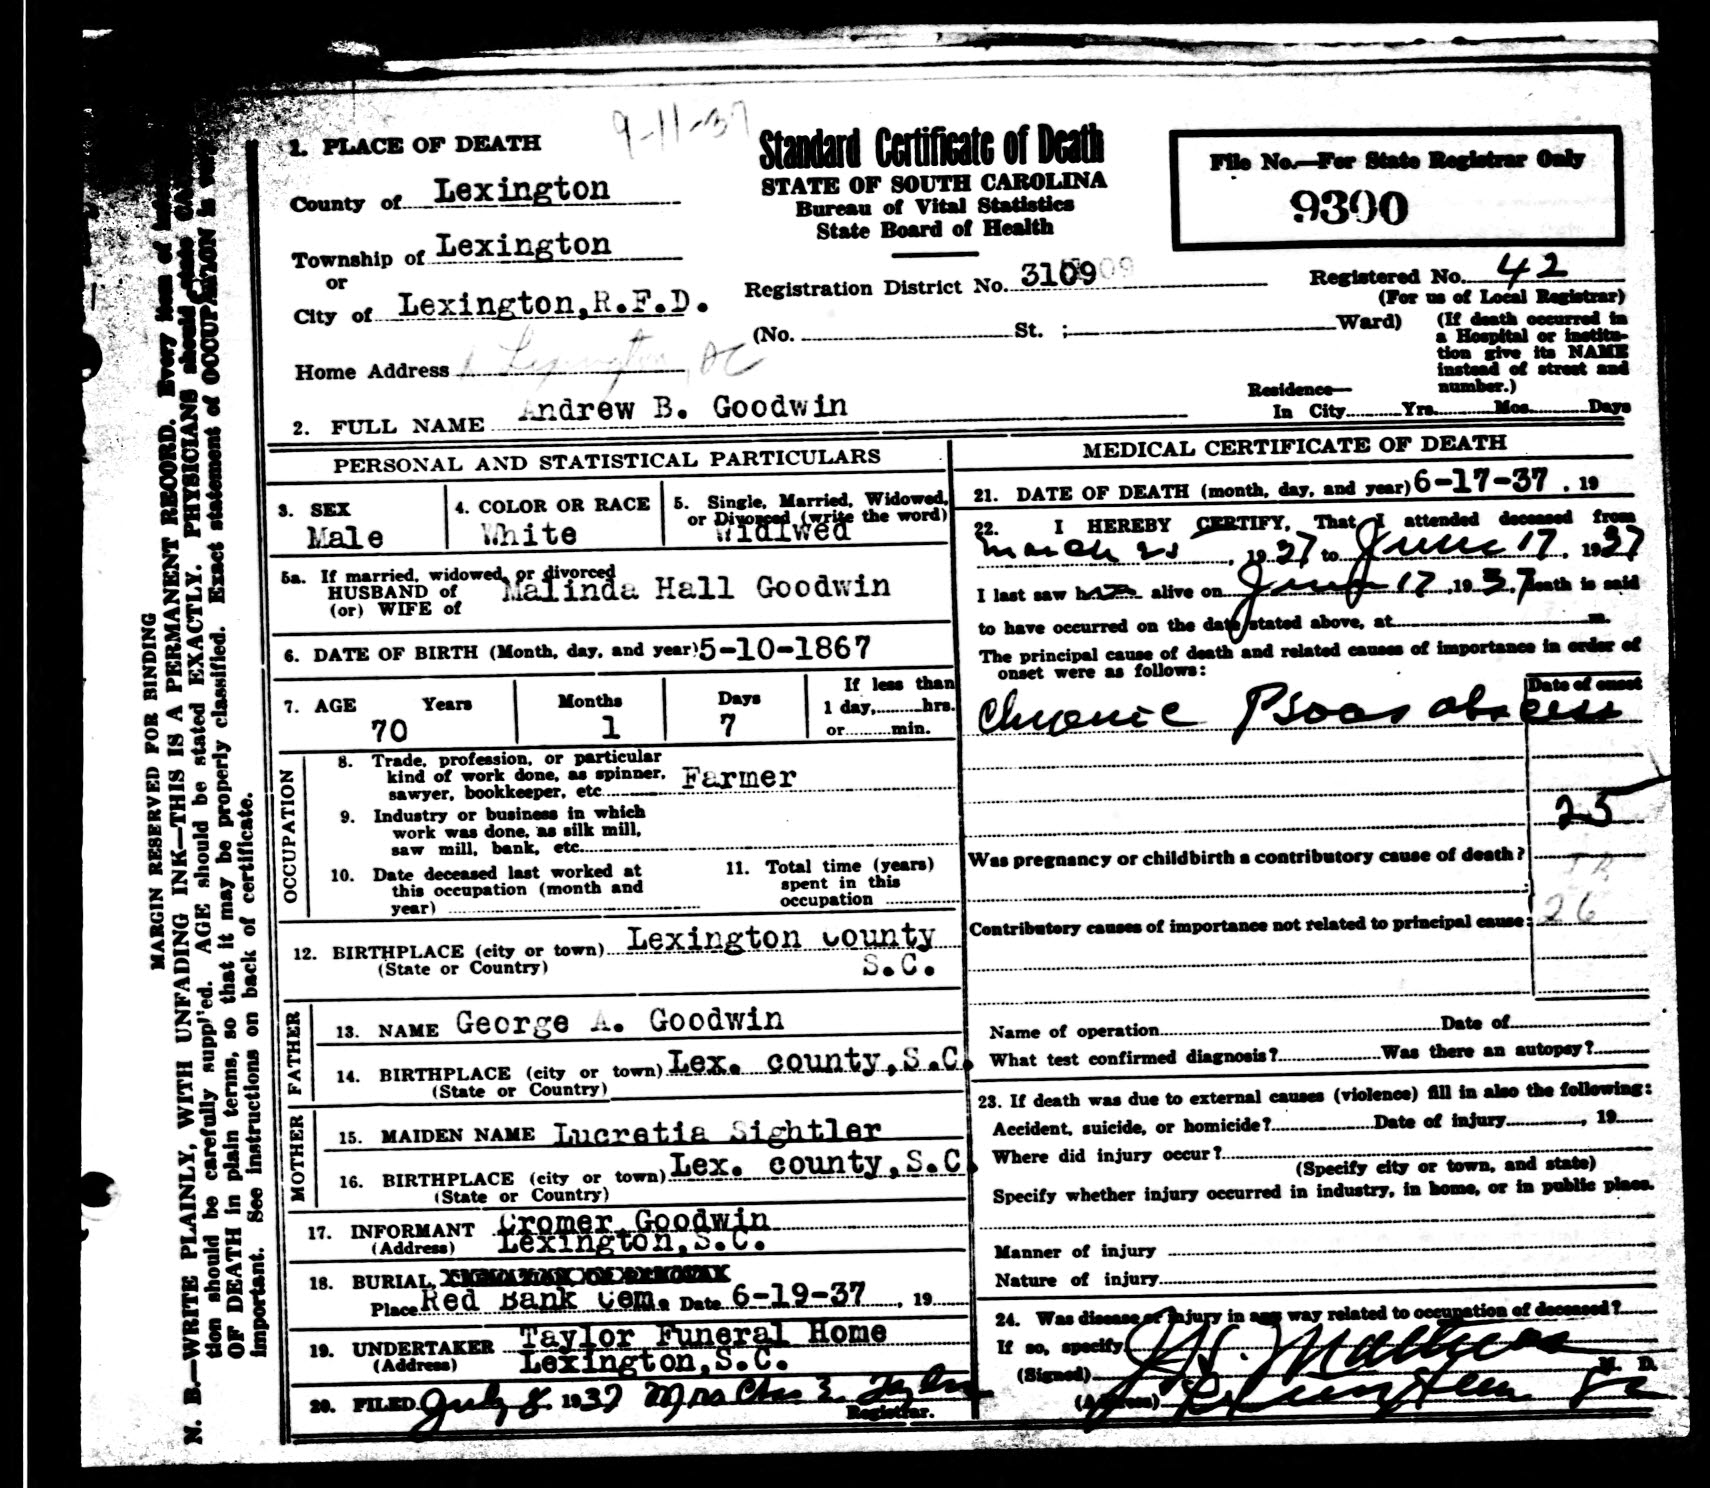 9-11-37
1. PLACE OF DEATH
County of Lexington
Township of Lexington
or
City of Lexington,R.F.D.
Home Address Lexington, SC
Standard Certificate of Death
STATE OF SOUTH CAROLINA
Bureau of Vital Statistics
State Board of Health
Registration District No. 3109 09
(No. St. ; Ward)
File No.—For State Registrar Only
9300
Registered No. 42
(For us of Local Registrar)
(If death occurred in
a Hospital or institu-
tion give its NAME
instead of street and
number.)
Residence—
In City Yrs. Mos. Days
2. FULL NAME Andrew B. Goodwin
PERSONAL AND STATISTICAL PARTICULARS
3. SEX
Male
4. COLOR OR RACE
White
5. Single, Married, Widowed,
or Divorced (write the word)
Widiwed
5a. If married, widowed, or divorced
HUSBAND of
(or) WIFE of
Malinda Hall Goodwin
6. DATE OF BIRTH (Month, day, and year) 5-10-1867
7. AGE Years Months Days
70 1 7
If less than
1 day, hrs.
or min.
OCCUPATION
8. Trade, profession, or particular
kind of work done, as spinner,
sawyer, bookkeeper, etc. Farmer
9. Industry or business in which
work was done, as silk mill,
saw mill, bank, etc.
10. Date deceased last worked at
this occupation (month and
year)
11. Total time (years)
spent in this
occupation
12. BIRTHPLACE (city or town) Lexington County
(State or Country) S.C.
FATHER
13. NAME George A. Goodwin
14. BIRTHPLACE (city or town) Lex. county,S.C.
(State or Country)
MOTHER
15. MAIDEN NAME Lucretia Sightler
16. BIRTHPLACE (city or town) Lex. county,S.C.
(State or Country)
17. INFORMANT Cromer Goodwin
(Address) Lexington,S.C.
18. BURIAL,
Place Red Bank Cem. Date 6-19-37, 19
19. UNDERTAKER Taylor Funeral Home
(Address) Lexington,S.C.
20. FILED July 8 1937 Mrs Chas E. Taylor
Registrar.
MEDICAL CERTIFICATE OF DEATH
21. DATE OF DEATH (month, day, and year) 6-17-37 , 19
22. I HEREBY CERTIFY, That I attended deceased from
March 23, 1937 to June 17, 1937
I last saw him alive on June 17, 1937, death is said
to have occurred on the date stated above, at m.
The principal cause of death and related causes of importance in order of
onset were as follows:
Date of onset
Chronic Psoas abscess
25
Was pregnancy or childbirth a contributory cause of death?
26
Contributory causes of importance not related to principal cause:
Name of operation Date of
What test confirmed diagnosis? Was there an autopsy?
23. If death was due to external causes (violence) fill in also the following:
Accident, suicide, or homicide? Date of injury , 19
Where did injury occur?
(Specify city or town, and state)
Specify whether injury occurred in industry, in home, or in public place.
Manner of injury
Nature of injury
24. Was disease or injury in any way related to occupation of deceased?
If so, specify
(Signed) J.H. Mathias M. D.
(Address) Lexington SC
MARGIN RESERVED FOR BINDING
N. B.—WRITE PLAINLY, WITH UNFADING INK—THIS IS A PERMANENT RECORD. Every item of
tion should be carefully supplied. AGE should be stated EXACTLY. PHYSICIANS should state
OF DEATH in plain terms, so that it may be properly classified. Exact statement of OCCUPATION is very
important. See instructions on back of certificate.